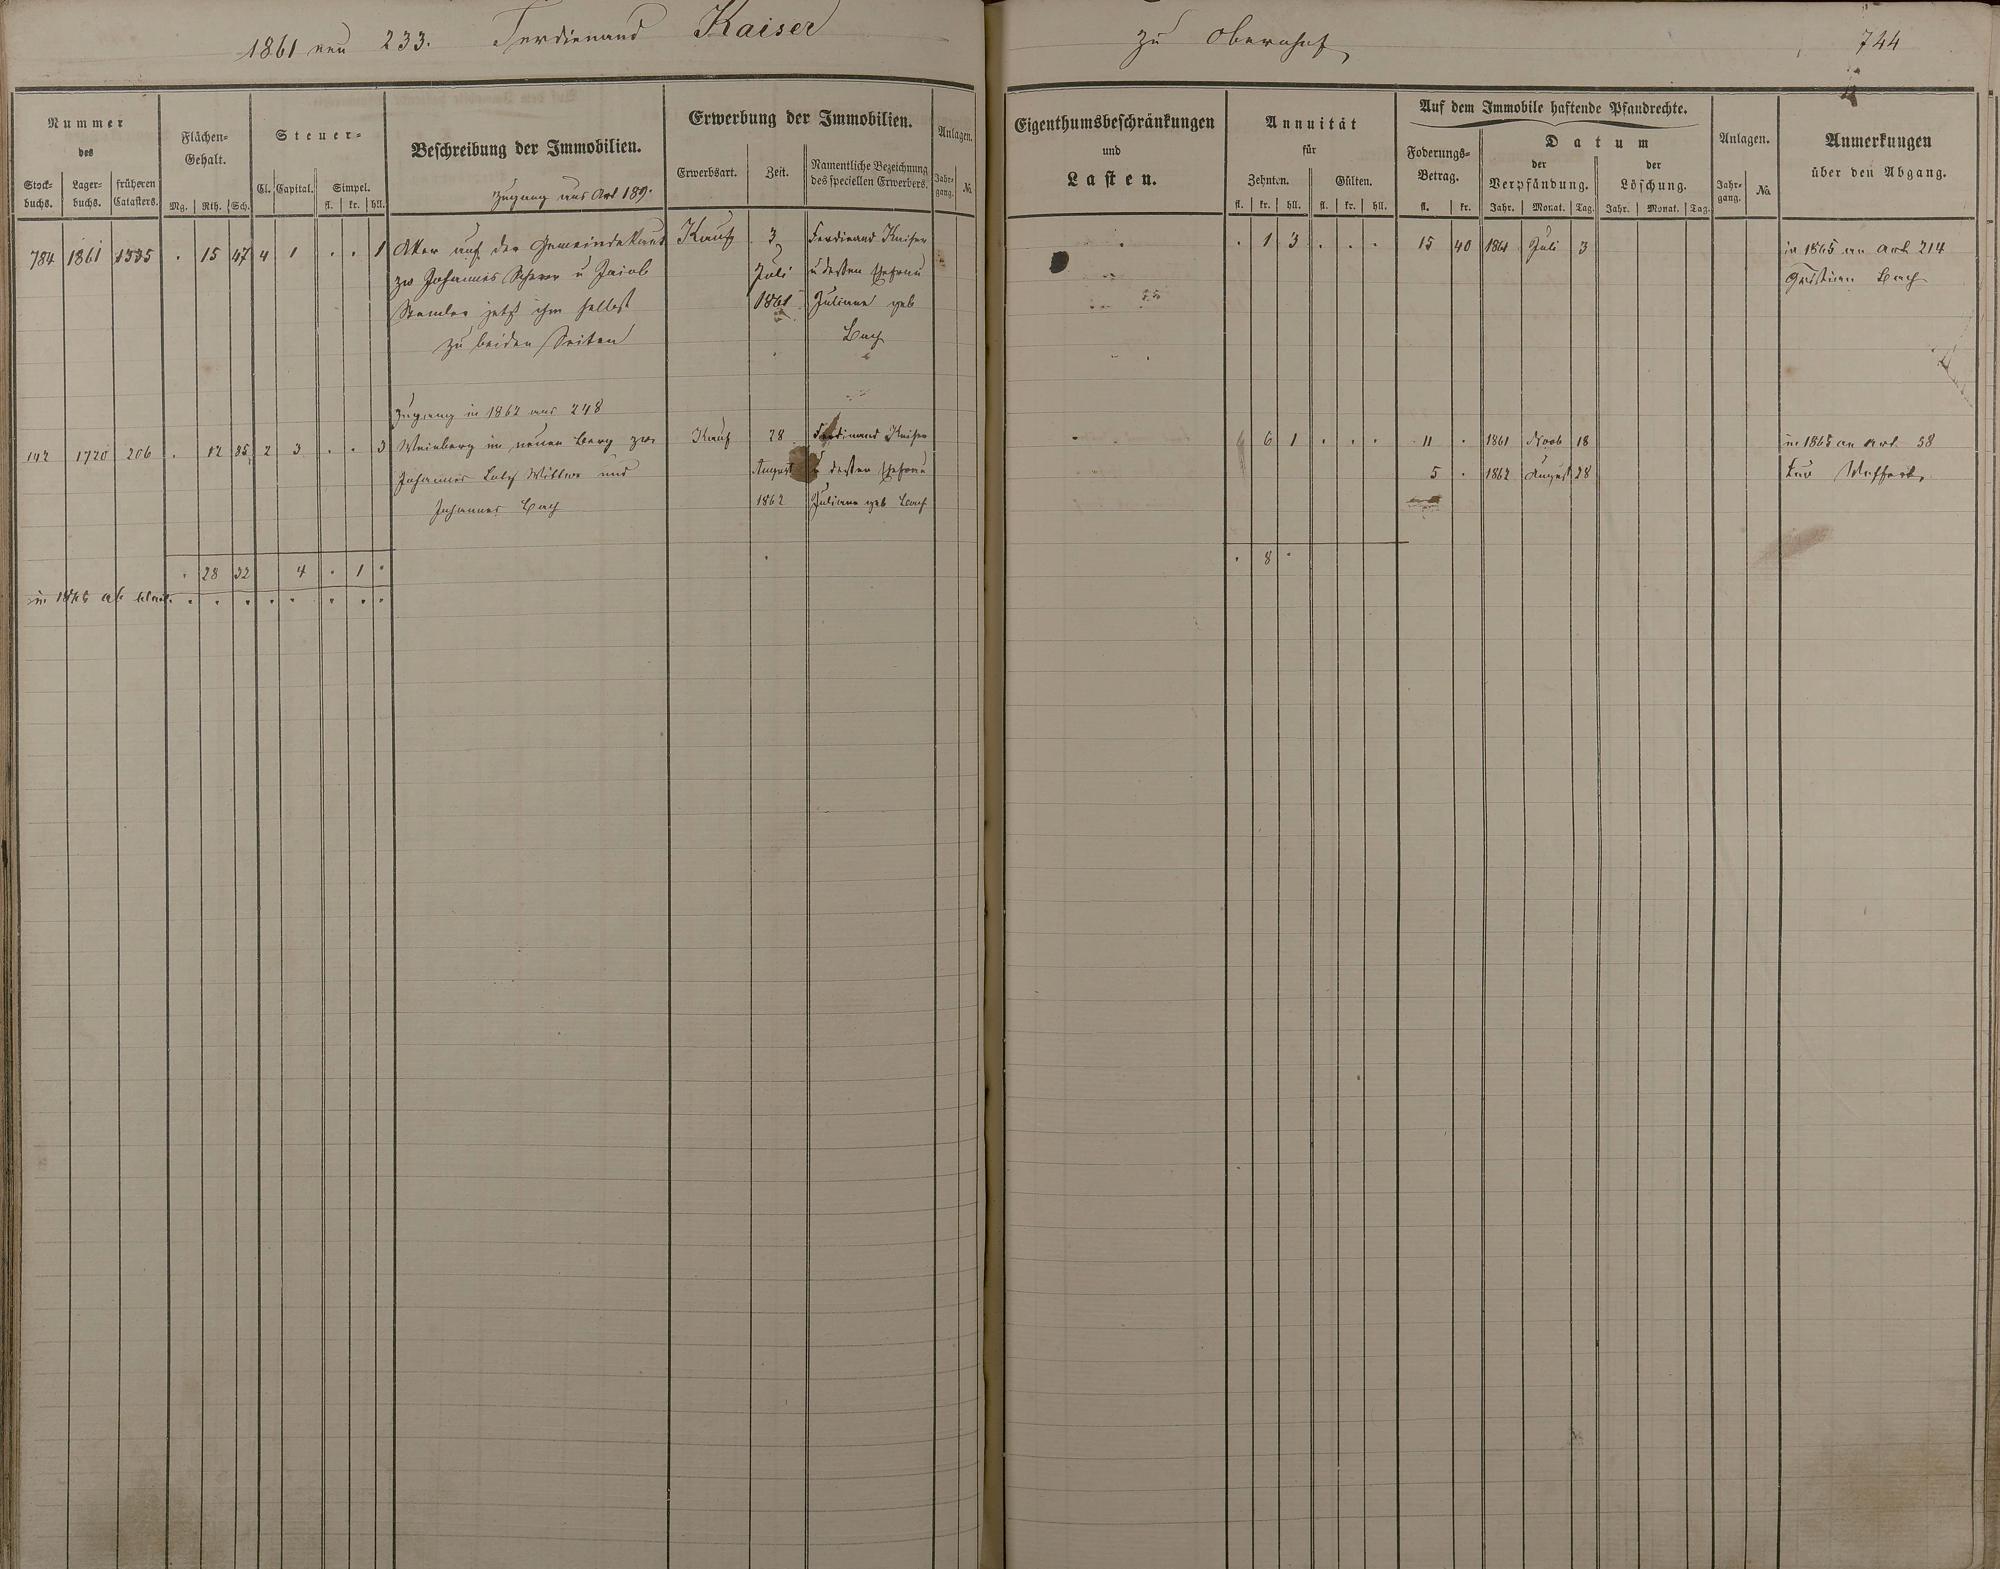 1861 neu 233. Ferdienand Kaiser
zu Obernhof, 744
Nummer des
Stock-buchs. Lager-buchs. früheren Catasters.
Flächen-Gehalt.
Mg. Rth. Sch.
Steuer-
Cl. Capital. Simpel.
fl. kr. hll.
Beschreibung der Immobilien.
Zugang aus Art 189.
Erwerbung der Immobilien.
Erwerbsart. Zeit. Namentliche Bezeichnung des speciellen Erwerbers.
Anlagen.
Jahr-gang. No.
Eigenthumsbeschränkungen
und
Lasten.
Annuität
für
Zehnten. Gülten.
fl. kr. hll. fl. kr. hll.
Auf dem Immobile haftende Pfandrechte.
Foderungs-Betrag.
fl. kr.
Datum
der Verpfändung. der Löschung.
Jahr. Monat. Tag. Jahr. Monat. Tag.
Anlagen.
Jahr-gang. No.
Anmerkungen
über den Abgang.
784 1861 1335 . 15 47 4 1 . . 1 Aker auf der Gemeinde Kauf 3 Ferdinand Kaiser . 1 3 . . . 15 40 1861 Juli 3 in 1865 an Art. 214
zw Johannes Scherer u Jacob Juli u dessen Ehefrau Christian Bach
Stemler jetzt ihm selbst 1861 Juliane geb
zu beiden Seiten Bach
Zugang in 1862 aus 248
142 1720 206 . 12 85 2 3 . . 3 Weinberg im neuen Berg zw. Kauf 28 Ferdinand Kaiser 6 1 . . . 11 . 1861 Novb 18 in 1865 an Art. 38
Johannes Wittwe und August u dessen Ehefrau 5 . 1862 August 28
Johannes Bach 1862 Juliane geb Bach
. 28 32 4 . 1 . . 8 .
in 1865 ab